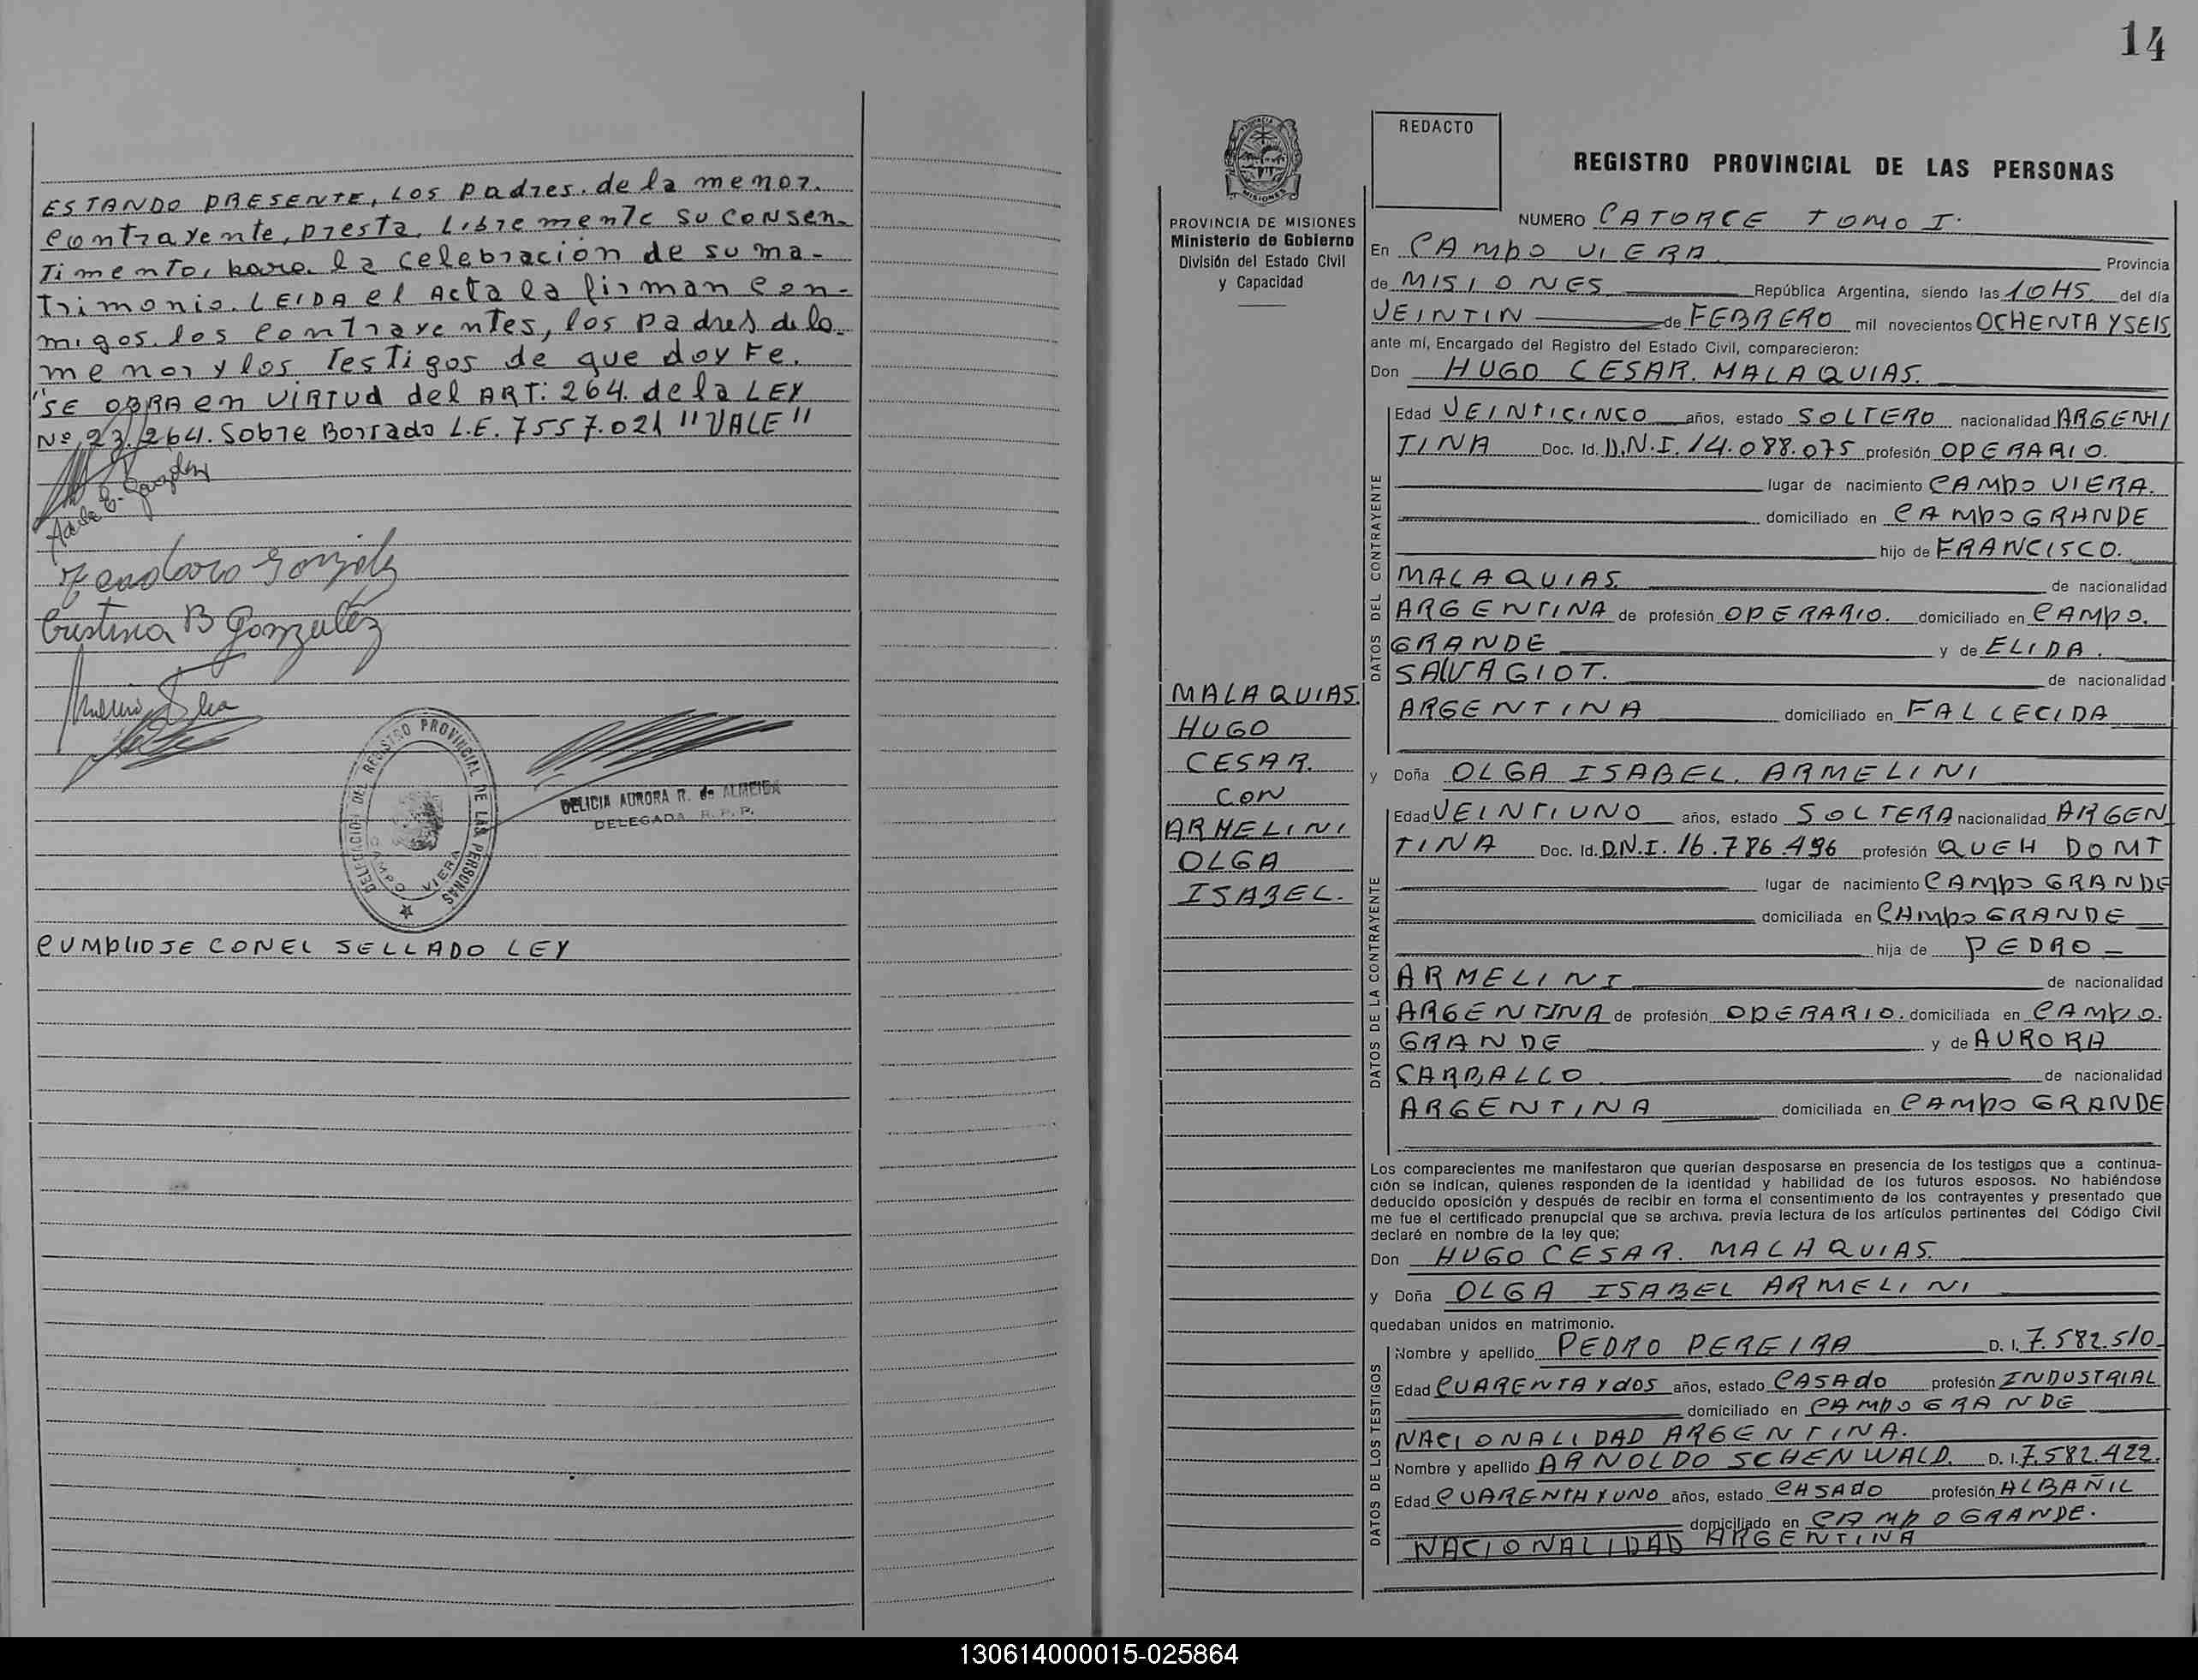 ESTANDO PRESENTE, LOS padres. de la menor.
contrayente, presta, Libremente su consen-
timento, para. la celebración de su ma-
trimonio. LEIDA el Acta la firman con-
migos. los contrayentes, los padres de la
menor y los Testigos de que doy Fe.
"SE OBRA en VIRTUD del ART: 264. de la LEY
Nº 23./264. Sobre Borrado L.E. 7557.021 "VALE"
Teodoro González
Cristina B González
DELEGACION DEL REGISTRO PROVINCIAL DE LAS PERSONAS
CAMPO VIERA
DELICIA AURORA R. de ALMEIDA
DELEGADA R. P. P.
CUMPLIOSE CON EL SELLADO LEY
14
PROVINCIA DE MISIONES
Ministerio de Gobierno
División del Estado Civil
y Capacidad
MALAQUIAS.
HUGO
CESAR.
CON
ARMELINI
OLGA
ISABEL.
REDACTO
REGISTRO PROVINCIAL DE LAS PERSONAS
NUMERO CATORCE TOMO I.
En CAMPO VIERA Provincia
de MISIONES República Argentina, siendo las 10 HS. del día
VEINTIN de FEBRERO mil novecientos OCHENTA Y SEIS
ante mí, Encargado del Registro del Estado Civil, comparecieron:
Don HUGO CESAR. MALAQUIAS.
DATOS DEL CONTRAYENTE
Edad VEINTICINCO años, estado SOLTERO nacionalidad ARGENTI
TINA Doc. Id. D.N.I. 14.088.075 profesión OPERARIO.
lugar de nacimiento CAMPO VIERA.
domiciliado en CAMPO GRANDE
hijo de FRANCISCO.
MALAQUIAS. de nacionalidad
ARGENTINA de profesión OPERARIO. domiciliado en CAMPO.
GRANDE y de ELIDA.
SALVAGIOT. de nacionalidad
ARGENTINA domiciliado en FALLECIDA
y Doña OLGA ISABEL. ARMELINI
DATOS DE LA CONTRAYENTE
Edad VEINTIUNO años, estado SOLTERA nacionalidad ARGEN
TINA Doc. Id. D.N.I. 16.786.496 profesión QUEH DOMT
lugar de nacimiento CAMPO GRANDE
domiciliada en CAMPO GRANDE
hija de PEDRO -
ARMELINI de nacionalidad
ARGENTINA de profesión OPERARIO. domiciliada en CAMPO.
GRANDE y de AURORA
CARBALLO de nacionalidad
ARGENTINA domiciliada en CAMPO GRANDE
Los comparecientes me manifestaron que querían desposarse en presencia de los testigos que a continua-
ción se indican, quienes responden de la identidad y habilidad de los futuros esposos. No habiéndose
deducido oposición y después de recibir en forma el consentimiento de los contrayentes y presentado que
me fue el certificado prenupcial que se archiva. previa lectura de los artículos pertinentes del Código Civil
declaré en nombre de la ley que;
Don HUGO CESAR. MALAQUIAS.
y Doña OLGA ISABEL ARMELINI
quedaban unidos en matrimonio.
DATOS DE LOS TESTIGOS
Nombre y apellido PEDRO PEREIRA D. I. 7.582.510
Edad CUARENTA Y dOS años, estado CASAdo profesión INDUSTRIAL
domiciliado en CAMPO GRANDE
NACIONALIDAD ARGENTINA.
Nombre y apellido ARNOLDO SCHENWALD. D. I. 7.582.422.
Edad CUARENTA Y UNO años, estado CASADO profesión ALBAÑIL
domiciliado en CAMPO GRANDE.
NACIONALIDAD ARGENTINA
130614000015-025864